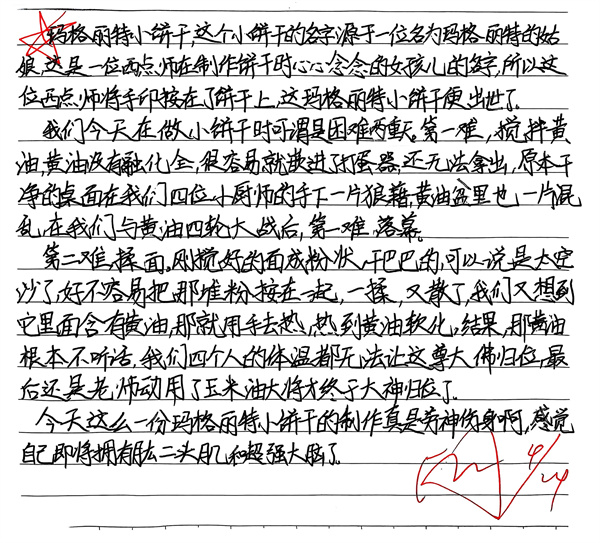 玛格丽特小饼干,这个小饼干的名字源于一位名为玛格丽特的姑
娘,这是一位西点师在制作饼干时心心念念的女孩儿的名字,所以这
位西点师将手印按在了饼干上,这玛格丽特小饼干便出世了。
我们今天在做小饼干时可谓是困难两重天。第一难,搅拌黄
油,黄油没有融化全,很容易就挤进了打蛋器,还无法拿出,原本干
净的桌面在我们四位小厨师的手下一片狼藉,黄油盆里也一片混
乱,在我们与黄油四轮大战后,第一难,落幕。
第二难,揉面。刚搅好的面成粉状,干巴巴的,可以说是太空
沙了,好不容易把那堆粉按在一起,一揉,又散了,我们又想到
它里面含有黄油,那就用手去热,热到黄油软化,结果,那黄油
根本不听话,我们四个人的体温都无法让这尊大佛归位,最
后还是老师动用了玉米油大将才终于大神归位了。
今天这么一份玛格丽特小饼干的制作真是劳神伤身啊,感觉
自己即将拥有肱二头肌和超强大脑了。
4/24